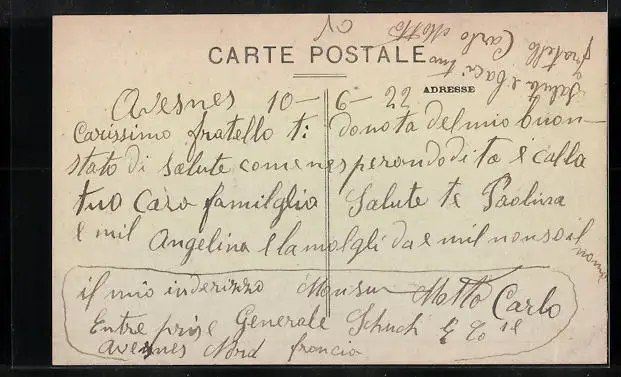 CARTE POSTALE
ADRESSE
Salute e baci tuo
fratello Carlo Motto
Avesnes 10-6-22
Carissimo fratello ti donota del mio buon-
stato di salute come nesperondo di te e calla
tuo Caro familglia Salute te Paolina
e mil Angelina e la molgli da e mil nonso il nome
il mio inderizzo Monsur Motto Carlo
Entre prise Generale Schuch & Co
Avesnes Nord francia